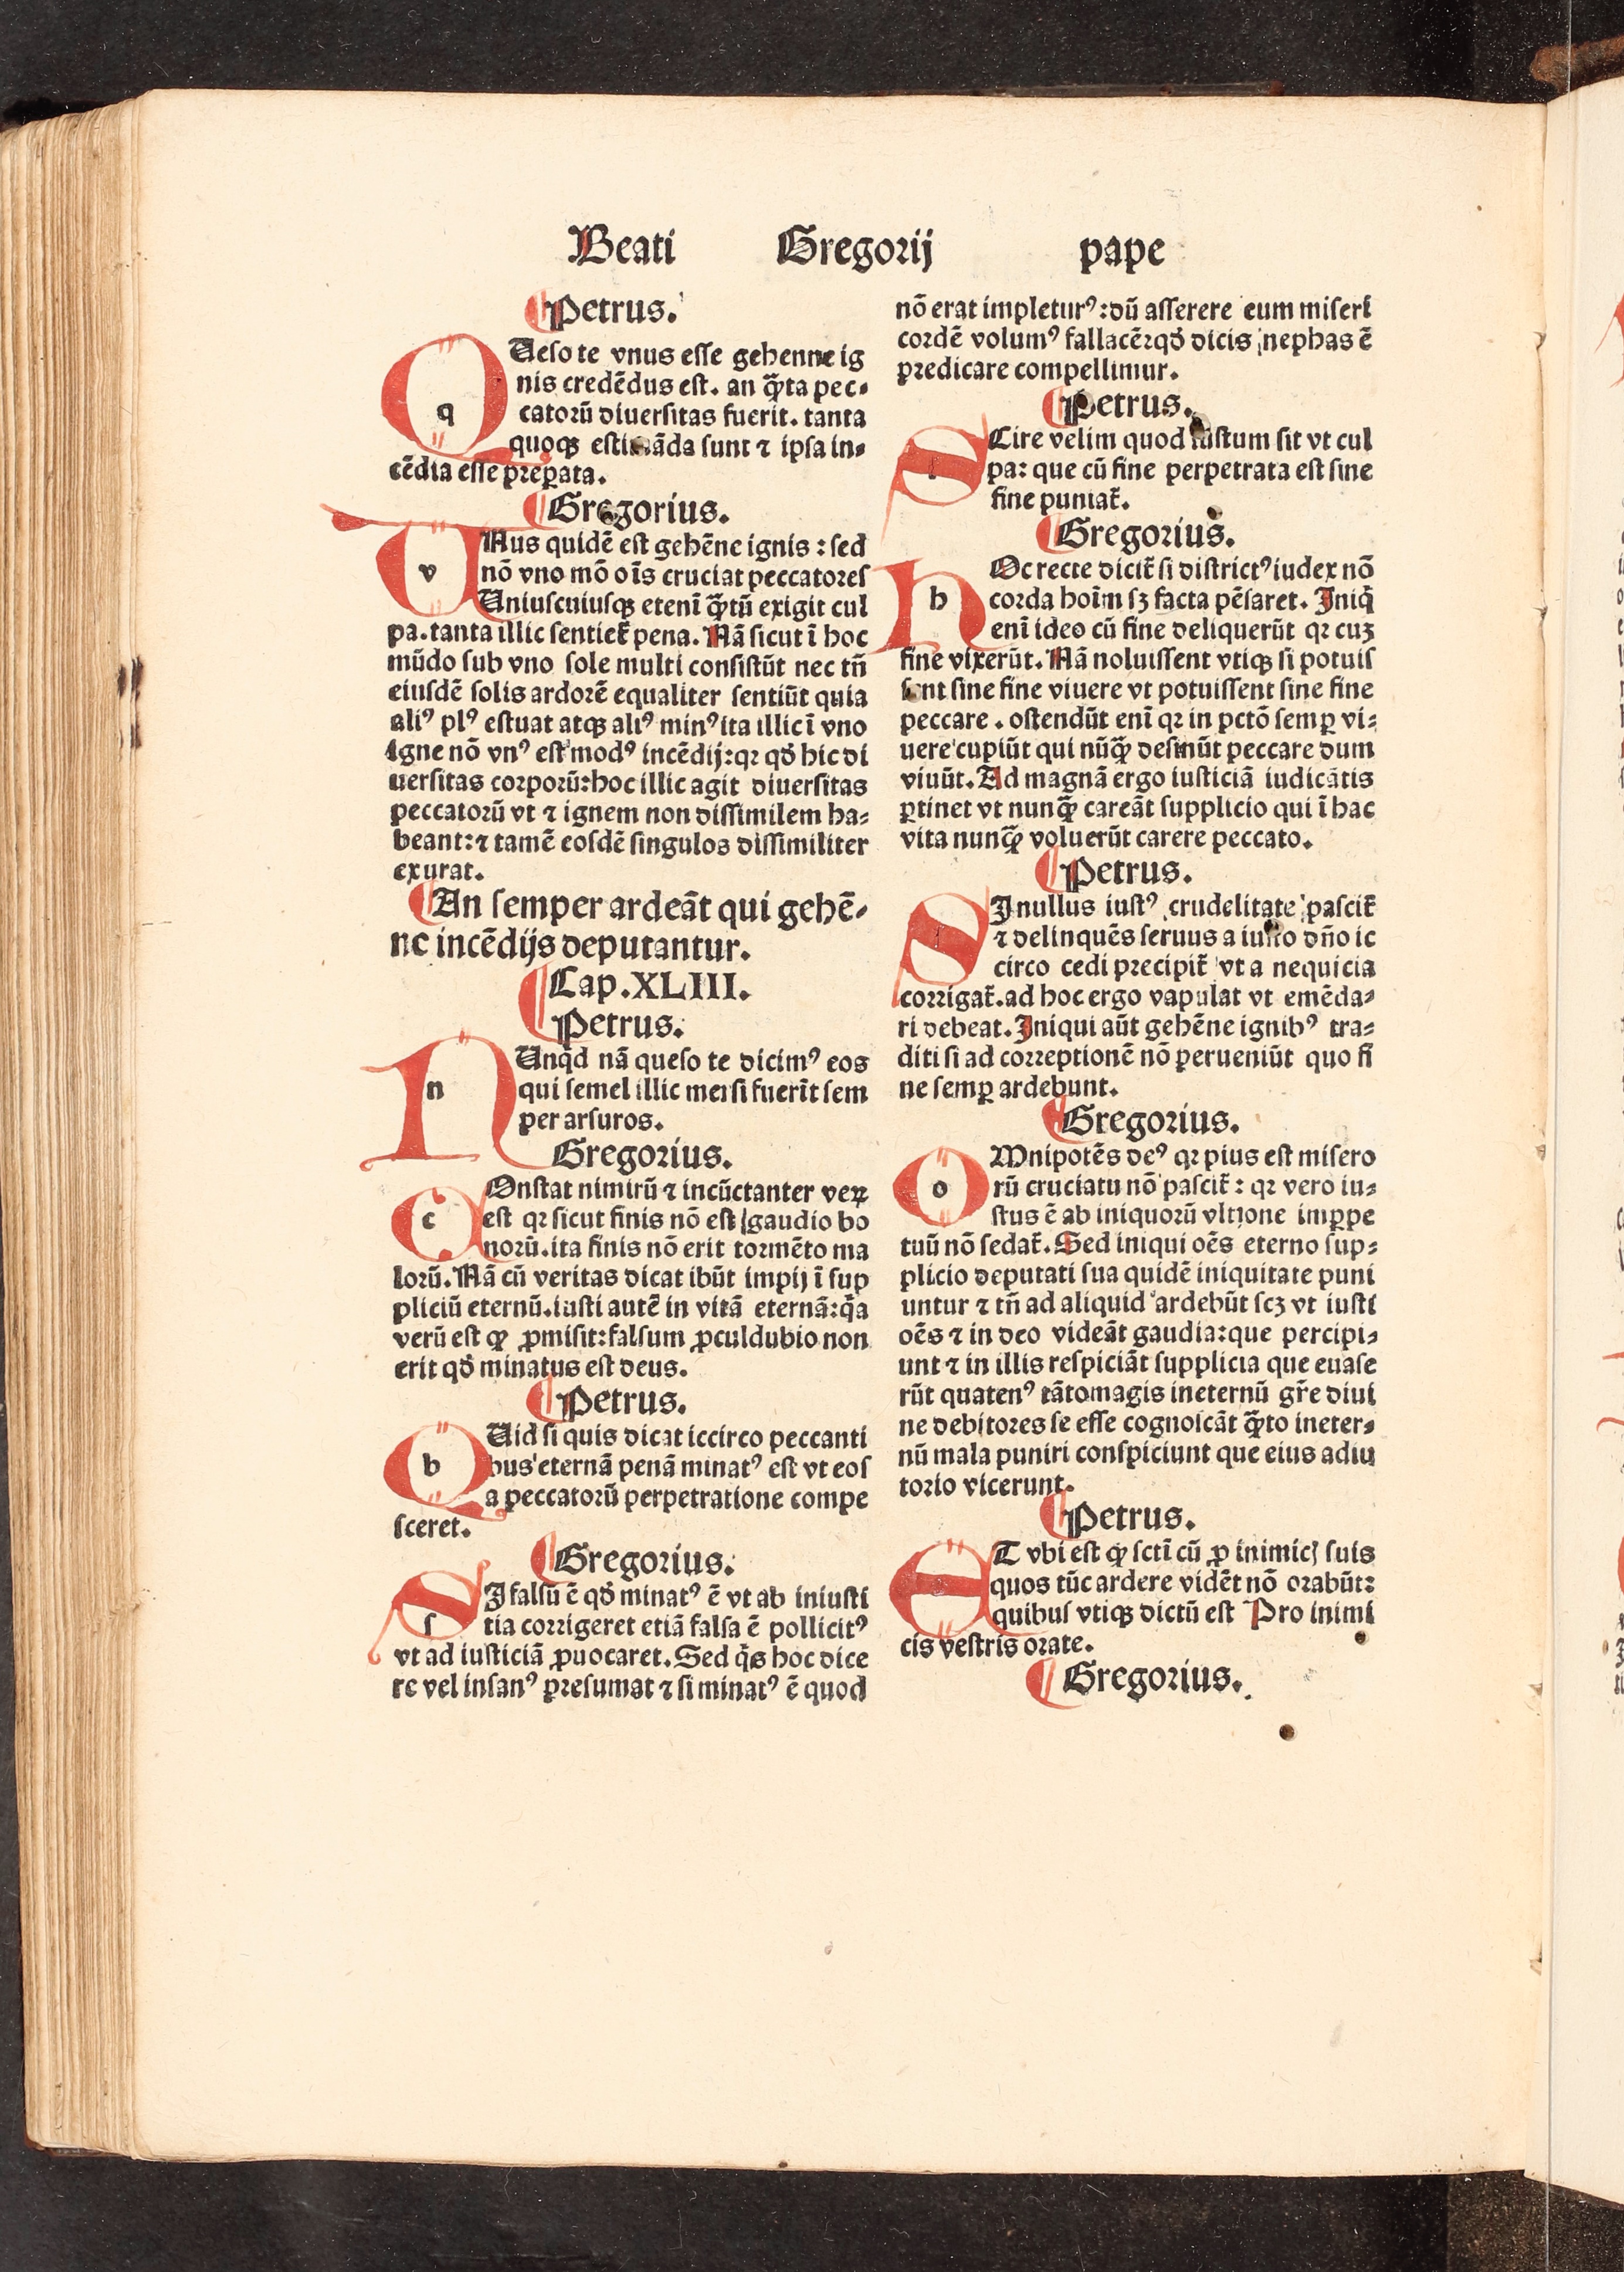 Beati Gregorij pape
Petrus.
QUeso te vnus esse gehenne ig
nis credēdus est. an q̃ta pec-
catorū diuersitas fuerit. tanta
quoqꝫ estimāda sunt ⁊ ipsa in-
cēdia esse p̃eꝑata.
Gregorius.
VNus quidē est gehēne ignis : sed
nō vno mō oīs cruciat peccatores
Uniuscuiusqꝫ etenī q̃tū exigit cul
pa. tanta illic sentiet̃ pena. Nā sicut ī hoc
mūdo sub vno sole multi consistūt nec tñ
eiusdē solis ardorē equaliter sentiūt quia
aliꝰ plꝰ estuat atqꝫ aliꝰ minꝰ ita illic ī vno
igne nō vnꝰ est modꝰ incēdij: qꝛ qð hic di
uersitas corporū: hoc illic agit diuersitas
peccatorū vt ⁊ ignem non dissimilem ha-
beant: ⁊ tamē eosdē singulos dissimiliter
exurat.
An semper ardeāt qui gehē-
ne incēdijs deputantur.
Cap. XLIII.
Petrus.
NUnq̇d nā queso te dicimꝰ eos
qui semel illic mersi fuerīt sem
per arsuros.
Gregorius.
COnstat nimirū ⁊ incūctanter veꝝ
est qꝛ sicut finis nō est gaudio bo
norū. ita finis nō erit tormēto ma
lorū. Nā cū veritas dicat ibūt impij ī sup
pliciū eternū. iusti autē in vitā eternā: q̃a
verū est qꝙ ꝓmisit: falsum ꝓculdubio non
erit qð minatus est deus.
Petrus.
QUid si quis dicat iccirco peccanti
bus eternā penā minatꝰ est vt eos
a peccatorū perpetratione compe
sceret.
Gregorius.
SI falsū ē qð minatꝰ ē vt ab iniusti
tia corrigeret etiā falsa ē pollicitꝰ
vt ad iusticiā ꝓuocaret. Sed q̇s hoc dice
re vel insanꝰ presumat ⁊ si minatꝰ ē quod
nō erat impleturꝰ: dū asserere eum miseri
cordē volumꝰ fallacē: qð dicis nephas ē
predicare compellimur.
Petrus.
SCire velim quod iustum sit vt cul
pa: que cū fine perpetrata est sine
fine puniat̃.
Gregorius.
hOc recte dicit̃ si districtꝰ iudex nō
corda hoīm sꝫ facta pēsaret. Iniq̇
enī ideo cū fine deliquerūt qꝛ cuꝫ
fine vixerūt. Nā noluissent vtiqꝫ si potuis
sent sine fine viuere vt potuissent sine fine
peccare. ostendūt enī qꝛ in pctō semꝑ vi-
uere cupiūt qui nūq̃ desinūt peccare dum
viuūt. Ad magnā ergo iusticiā iudicātis
ꝑtinet vt nunq̃ careāt supplicio qui ī hac
vita nunq̃ voluerūt carere peccato.
Petrus.
SI nullus iustꝰ crudelitate pascit̃
⁊ delinquēs seruus a iusto dño ic
circo cedi precipit̃ vt a nequicia
corrigat̃. ad hoc ergo vapulat vt emēda-
ri debeat. Iniqui aūt gehēne ignibꝰ tra-
diti si ad correptionē nō perueniūt quo fi
ne semꝑ ardebunt.
Gregorius.
OMnipotēs deꝰ qꝛ pius est misero
rū cruciatu nō pascit̃: qꝛ vero iu-
stus ē ab iniquorū vltione imꝑpe
tuū nō sedat̃. Sed iniqui oēs eterno sup-
plicio deputati sua quidē iniquitate puni
untur ⁊ tñ ad aliquid ardebūt scꝫ vt iusti
oēs ⁊ in deo videāt gaudia: que percipi-
unt ⁊ in illis respiciāt supplicia que euase
rūt quatenꝰ tātomagis ineternū gr̃e diui
ne debitores se esse cognoscāt q̃to ineter-
nū mala puniri conspiciunt que eius adiu
torio vicerunt.
Petrus.
ET vbi est qꝙ scti cū ꝓ inimicꝭ suis
quos tūc ardere vidēt nō orabūt:
quibus vtiqꝫ dictū est Pro inimi
cis vestris orate.
Gregorius.